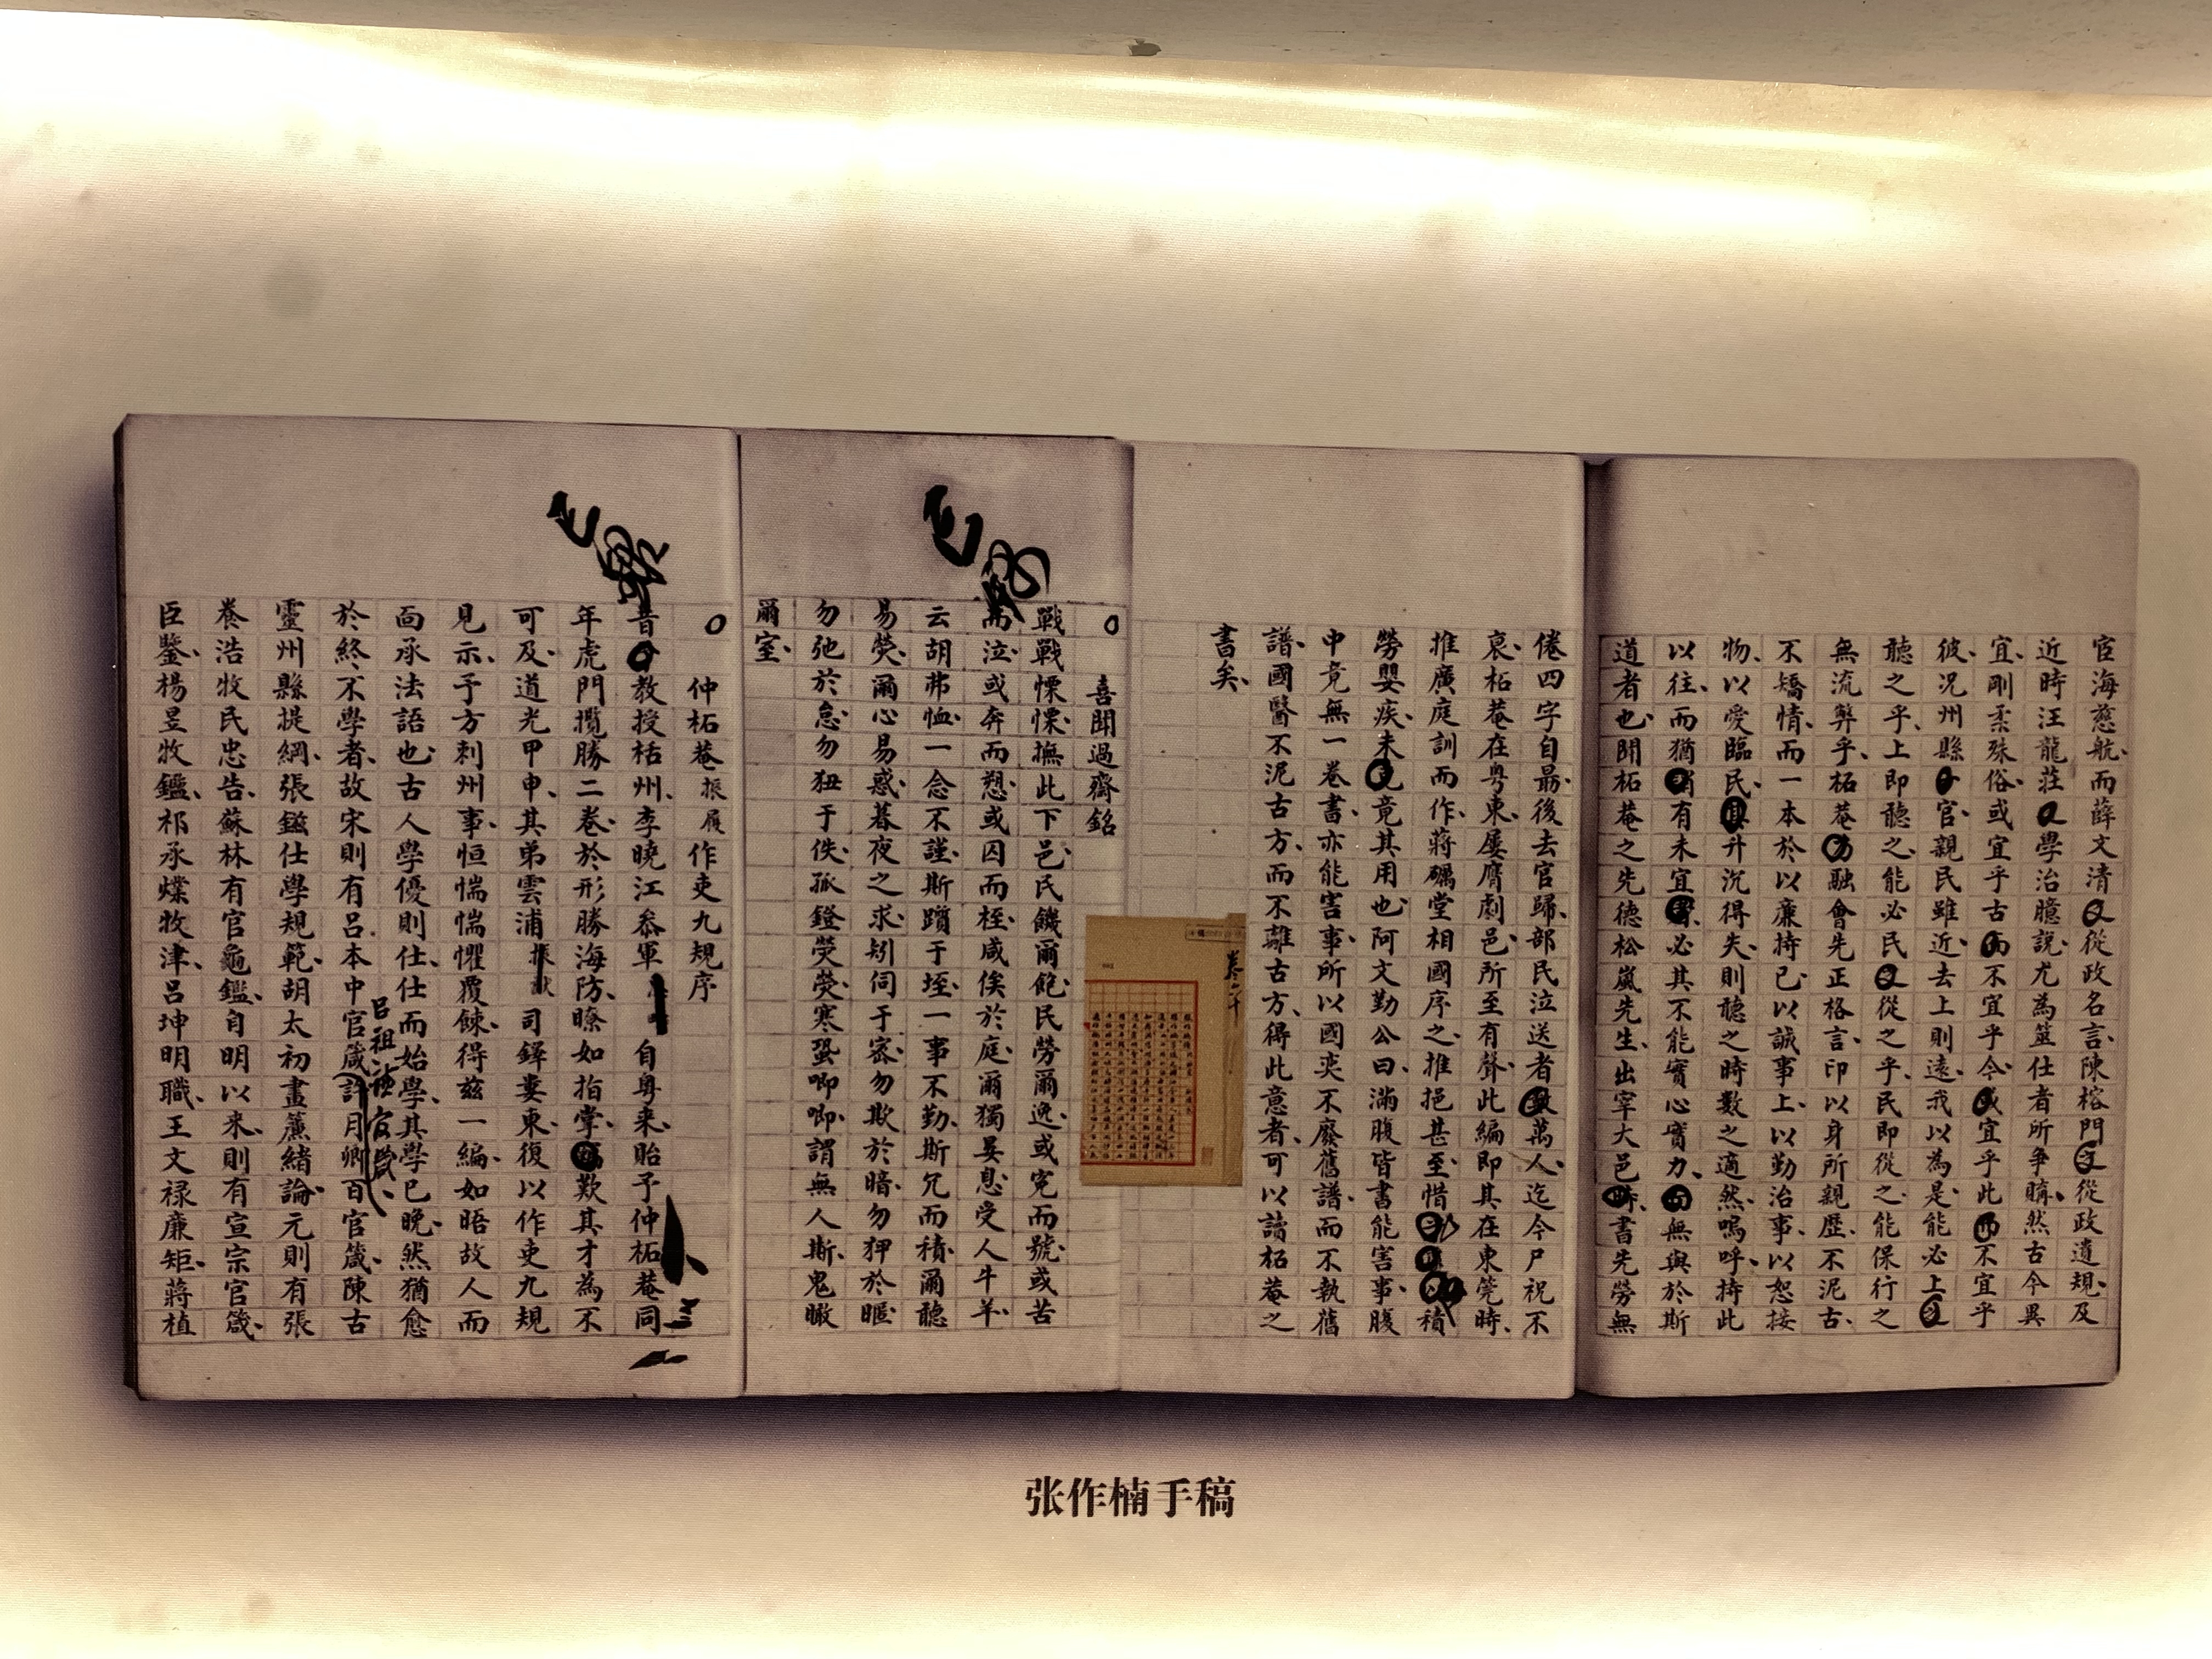 宦海慈航、而薛文清從政名言、陳榕門從政遺規、及
近時汪龍莊學治臆說、尤為筮仕者所爭購、然古今異
宜、剛柔殊俗、或宜乎古不宜乎今、宜乎此不宜乎
彼、況州縣官、親民雖近、去上則遠、我以為是、能必上
聽之乎、上即聽之、能必民從之乎、民即從之、能保行之
無流弊乎、柘菴融會先正格言、印以身所親歷、不泥古、
不矯情、而一本於以廉持己、以誠事上、以勤治事、以恕接
物、以愛臨民、升沉得失、則聽之時數之適然、嗚呼、持此
以往、而猶有未宜、必其不能實心實力、無與於斯
道者也、聞柘菴之先德松嵐先生、出宰大邑、書先勞無
倦四字自最後去官歸、部民泣送者萬人、迄今尸祝不
衰、柘菴在粵東、屢膺劇邑、所至有聲、此編即其在東筦時、
推廣庭訓而作、蔣礪堂相國序之、推挹甚至、惜積
勞嬰疾、未竟其用也、阿文勤公曰、滿腹皆書能害事、腹
中竟無一卷書、亦能害事、所以國奕不廢舊譜、而不執舊
譜、國醫不泥古方、而不離古方、得此意者、可以讀柘菴之
書矣、
喜聞過齋銘
戰戰慄慄、撫此下邑、民饑爾飽、民勞爾逸、或寃而號、或苦
而泣、或奔而愬、或囚而桎、咸俟於庭、爾獨晏息、受人牛羊、
云胡弗恤、一念不謹、斯躓于垤、一事不勤、斯冗而積、爾聽
易熒、爾心易惑、暮夜之求、矧伺于密、勿欺於暗、勿狎於暱
勿弛於怠、勿狃于佚、孤鐙熒熒、寒蛩唧唧、謂無人斯、鬼瞰
爾室、
仲柘菴振履作吏九規序
昔教授栝州、李曉江叅軍自粵来、貽予仲柘菴同
年虎門攬勝二卷、於形勝海防、瞭如指掌、歎其才為不
可及、道光甲申、其弟雲浦司鐸婁東、復以作吏九規
見示、予方刺州事、恒惴惴懼覆餗、得兹一編、如晤故人而
面承法語也、古人學優則仕、仕而始學、其學已晚、然猶愈
於終不學者、故宋則有呂本中官箴、許月卿百官箴、陳古
呂祖官箴、
靈州縣提綱、張鎡仕學規範、胡太初晝簾緒論、元則有張
養浩牧民忠告、蘇林有官龜鑑、自明以来、則有宣宗官箴、
臣鑒、楊昱牧鑑、祁承㸁牧津、呂坤明職、王文禄廉矩、蔣植
卷二十
张作楠手稿